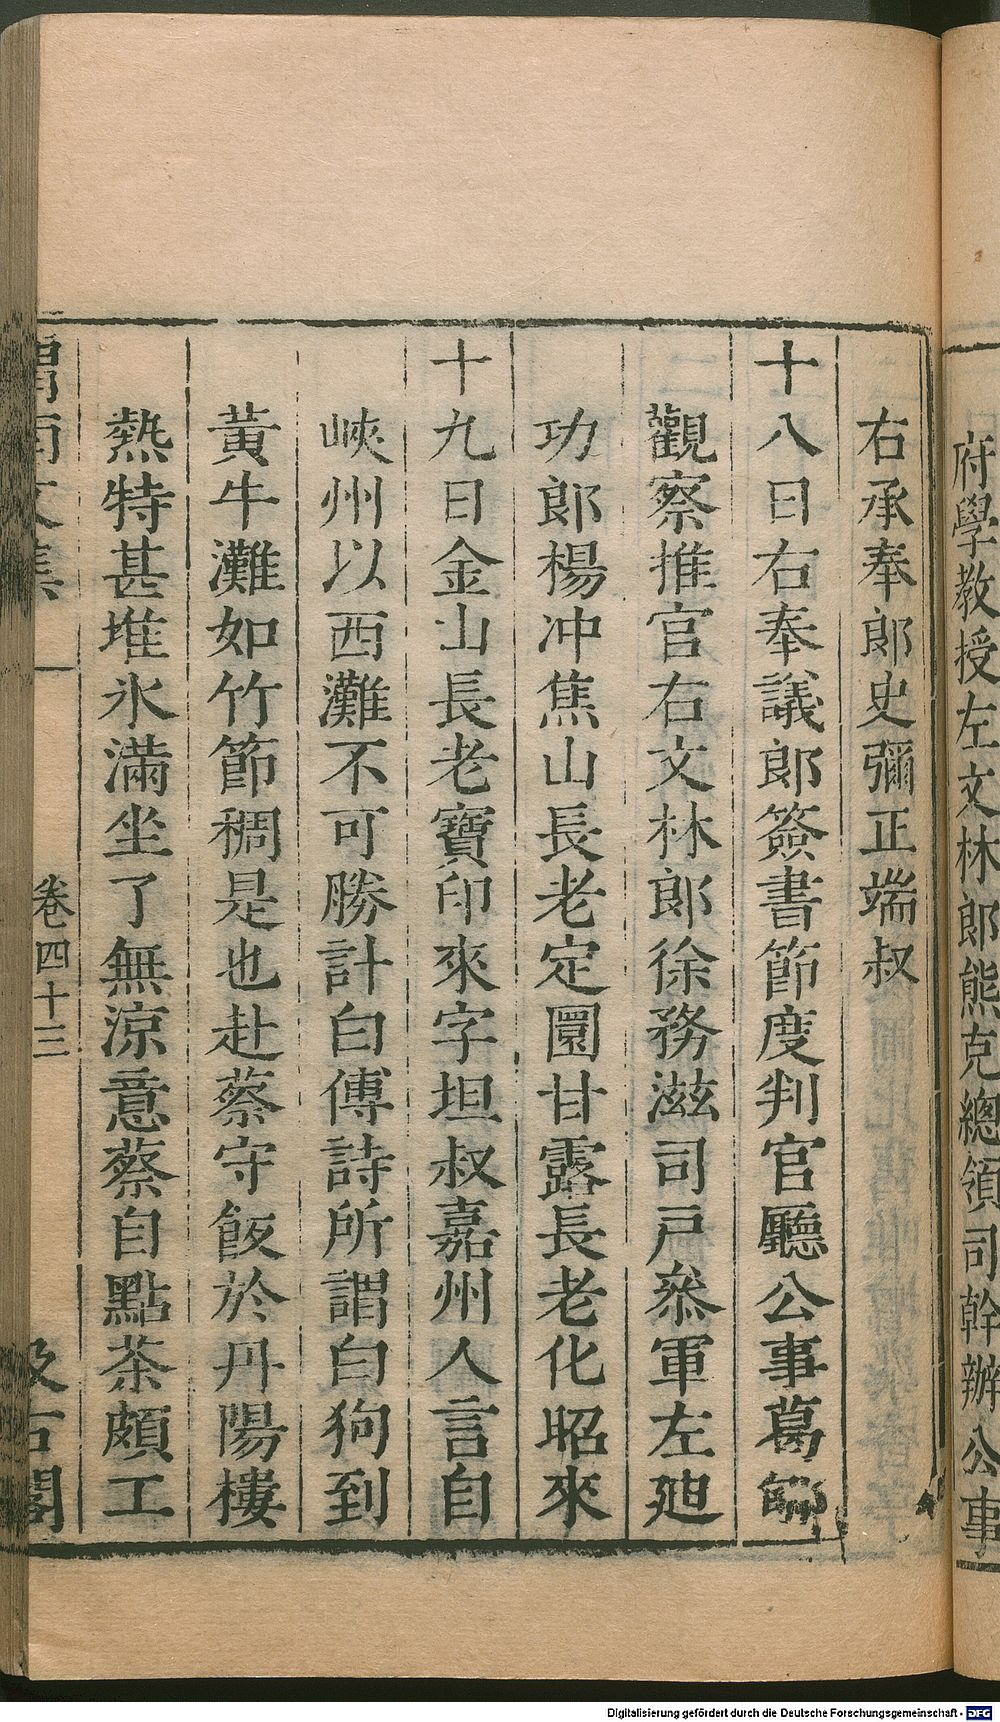 府學教授左文林郎熊克總領司幹辦公事
右承奉郎史彌正端叔
十八日右奉議郎簽書節度判官廳公事葛
觀察推官右文林郎徐務滋司戸叅軍左廸
功郎楊冲焦山長老定圜甘露長老化昭來
十九日金山長老寶印來字坦叔嘉州人言自
峽州以西灘不可勝計白傅詩所謂白狗到
黃牛灘如竹節稠是也赴蔡守飯於丹陽樓
熱特甚堆氷滿坐了無涼意蔡自點茶頗工
渭南文集
卷四十三
汲古閣
Digitalisierung gefördert durch die Deutsche Forschungsgemeinschaft - DFG